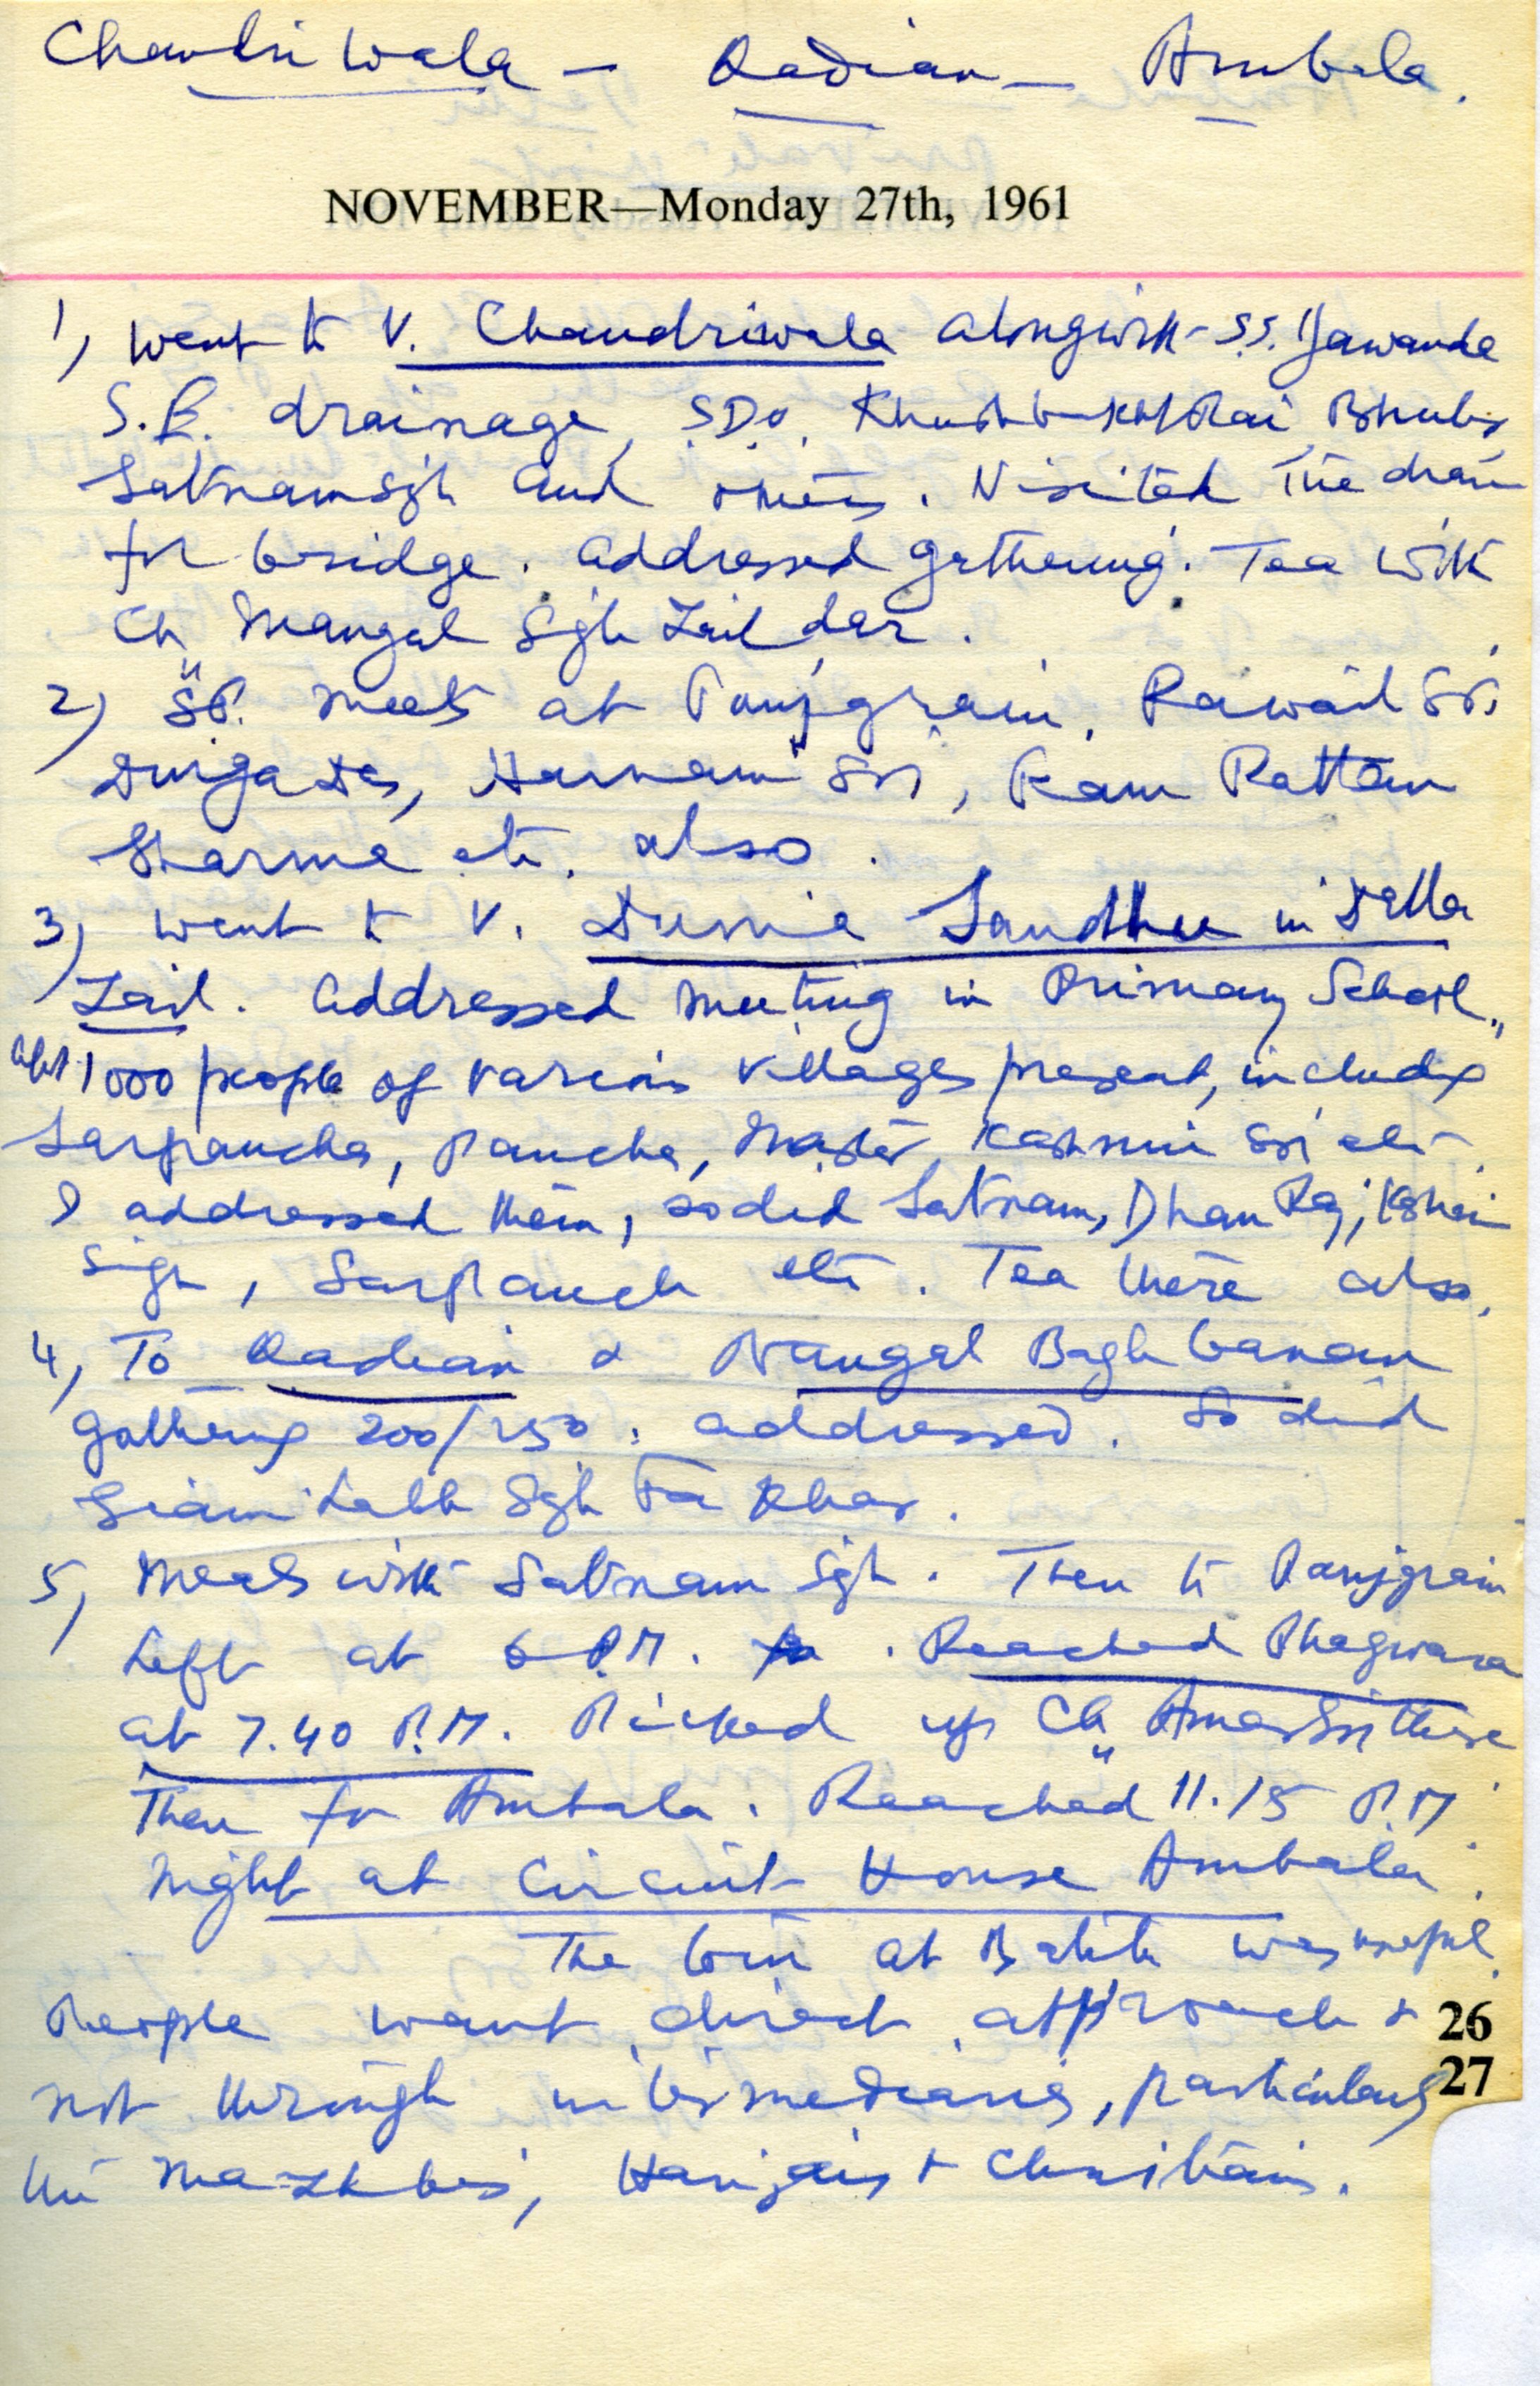 Chandriwala — Qadian — Ambala.
NOVEMBER—Monday 27th, 1961
1) Went to V. Chandriwala alongwith S.S. Jawanda
S.E. drainage, S.D.O. Rai
Satnam Sgh and others. Visited the drain
for bridge. Addressed gathering. Tea with
Ch. Mangal Sgh Zaildar.
2) meals at Panjgrain.
Durgadas, Harnam , Ram Rattan
Sharma etc. also.
3) Went to V. Sandhu in
Zail. Addressed meeting in Primary School,
abt 1000 people of various villages present, includg
Sarpanchs, Panchs, Master etc.
I addressed them, so did Satnam, Dhan Raj,
Sigh, Sarpanch etc. Tea there also.
4) To Qadian & Nangal Baghbanan
gathering 200/250. addressed. So did
Giani Labh Sgh Fakhar.
5) Meals with Satnam Sgh. Then to Panjgrain
Left at 6 P.M. . Reached Phagwara
at 7.40 P.M. Picked up Ch. Amar there
Then for Ambala. Reached 11.15 P.M.
Night at Circuit House Ambala.
The tour at was useful.
People want direct approach & 26
not through intermediaries, particularly 27
the Mazhbis, Harijans & Christians.